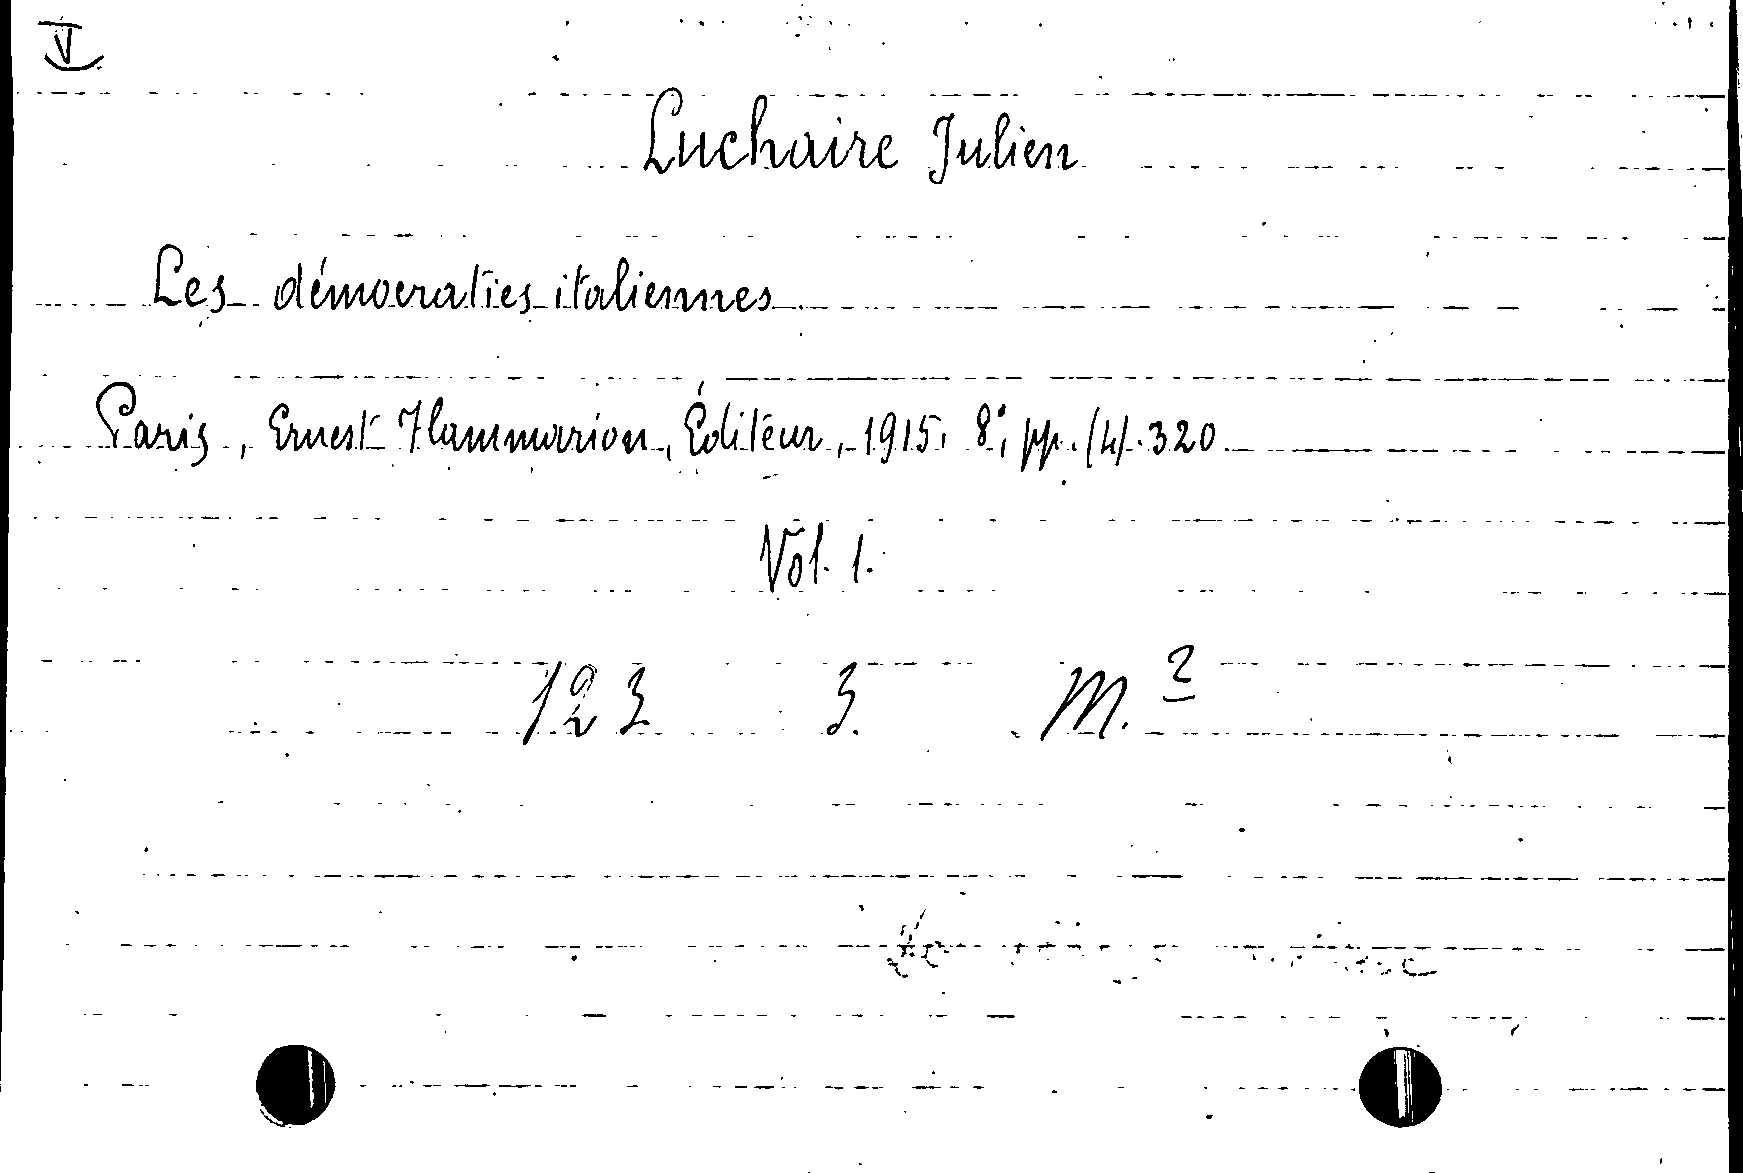 V
Luchaire Julien
Les démocraties italiennes
Paris, Ernest Flammarion, Éditeur, 1915. 8°, pp. (4). 320
Vol. 1.
123 3. M. 2